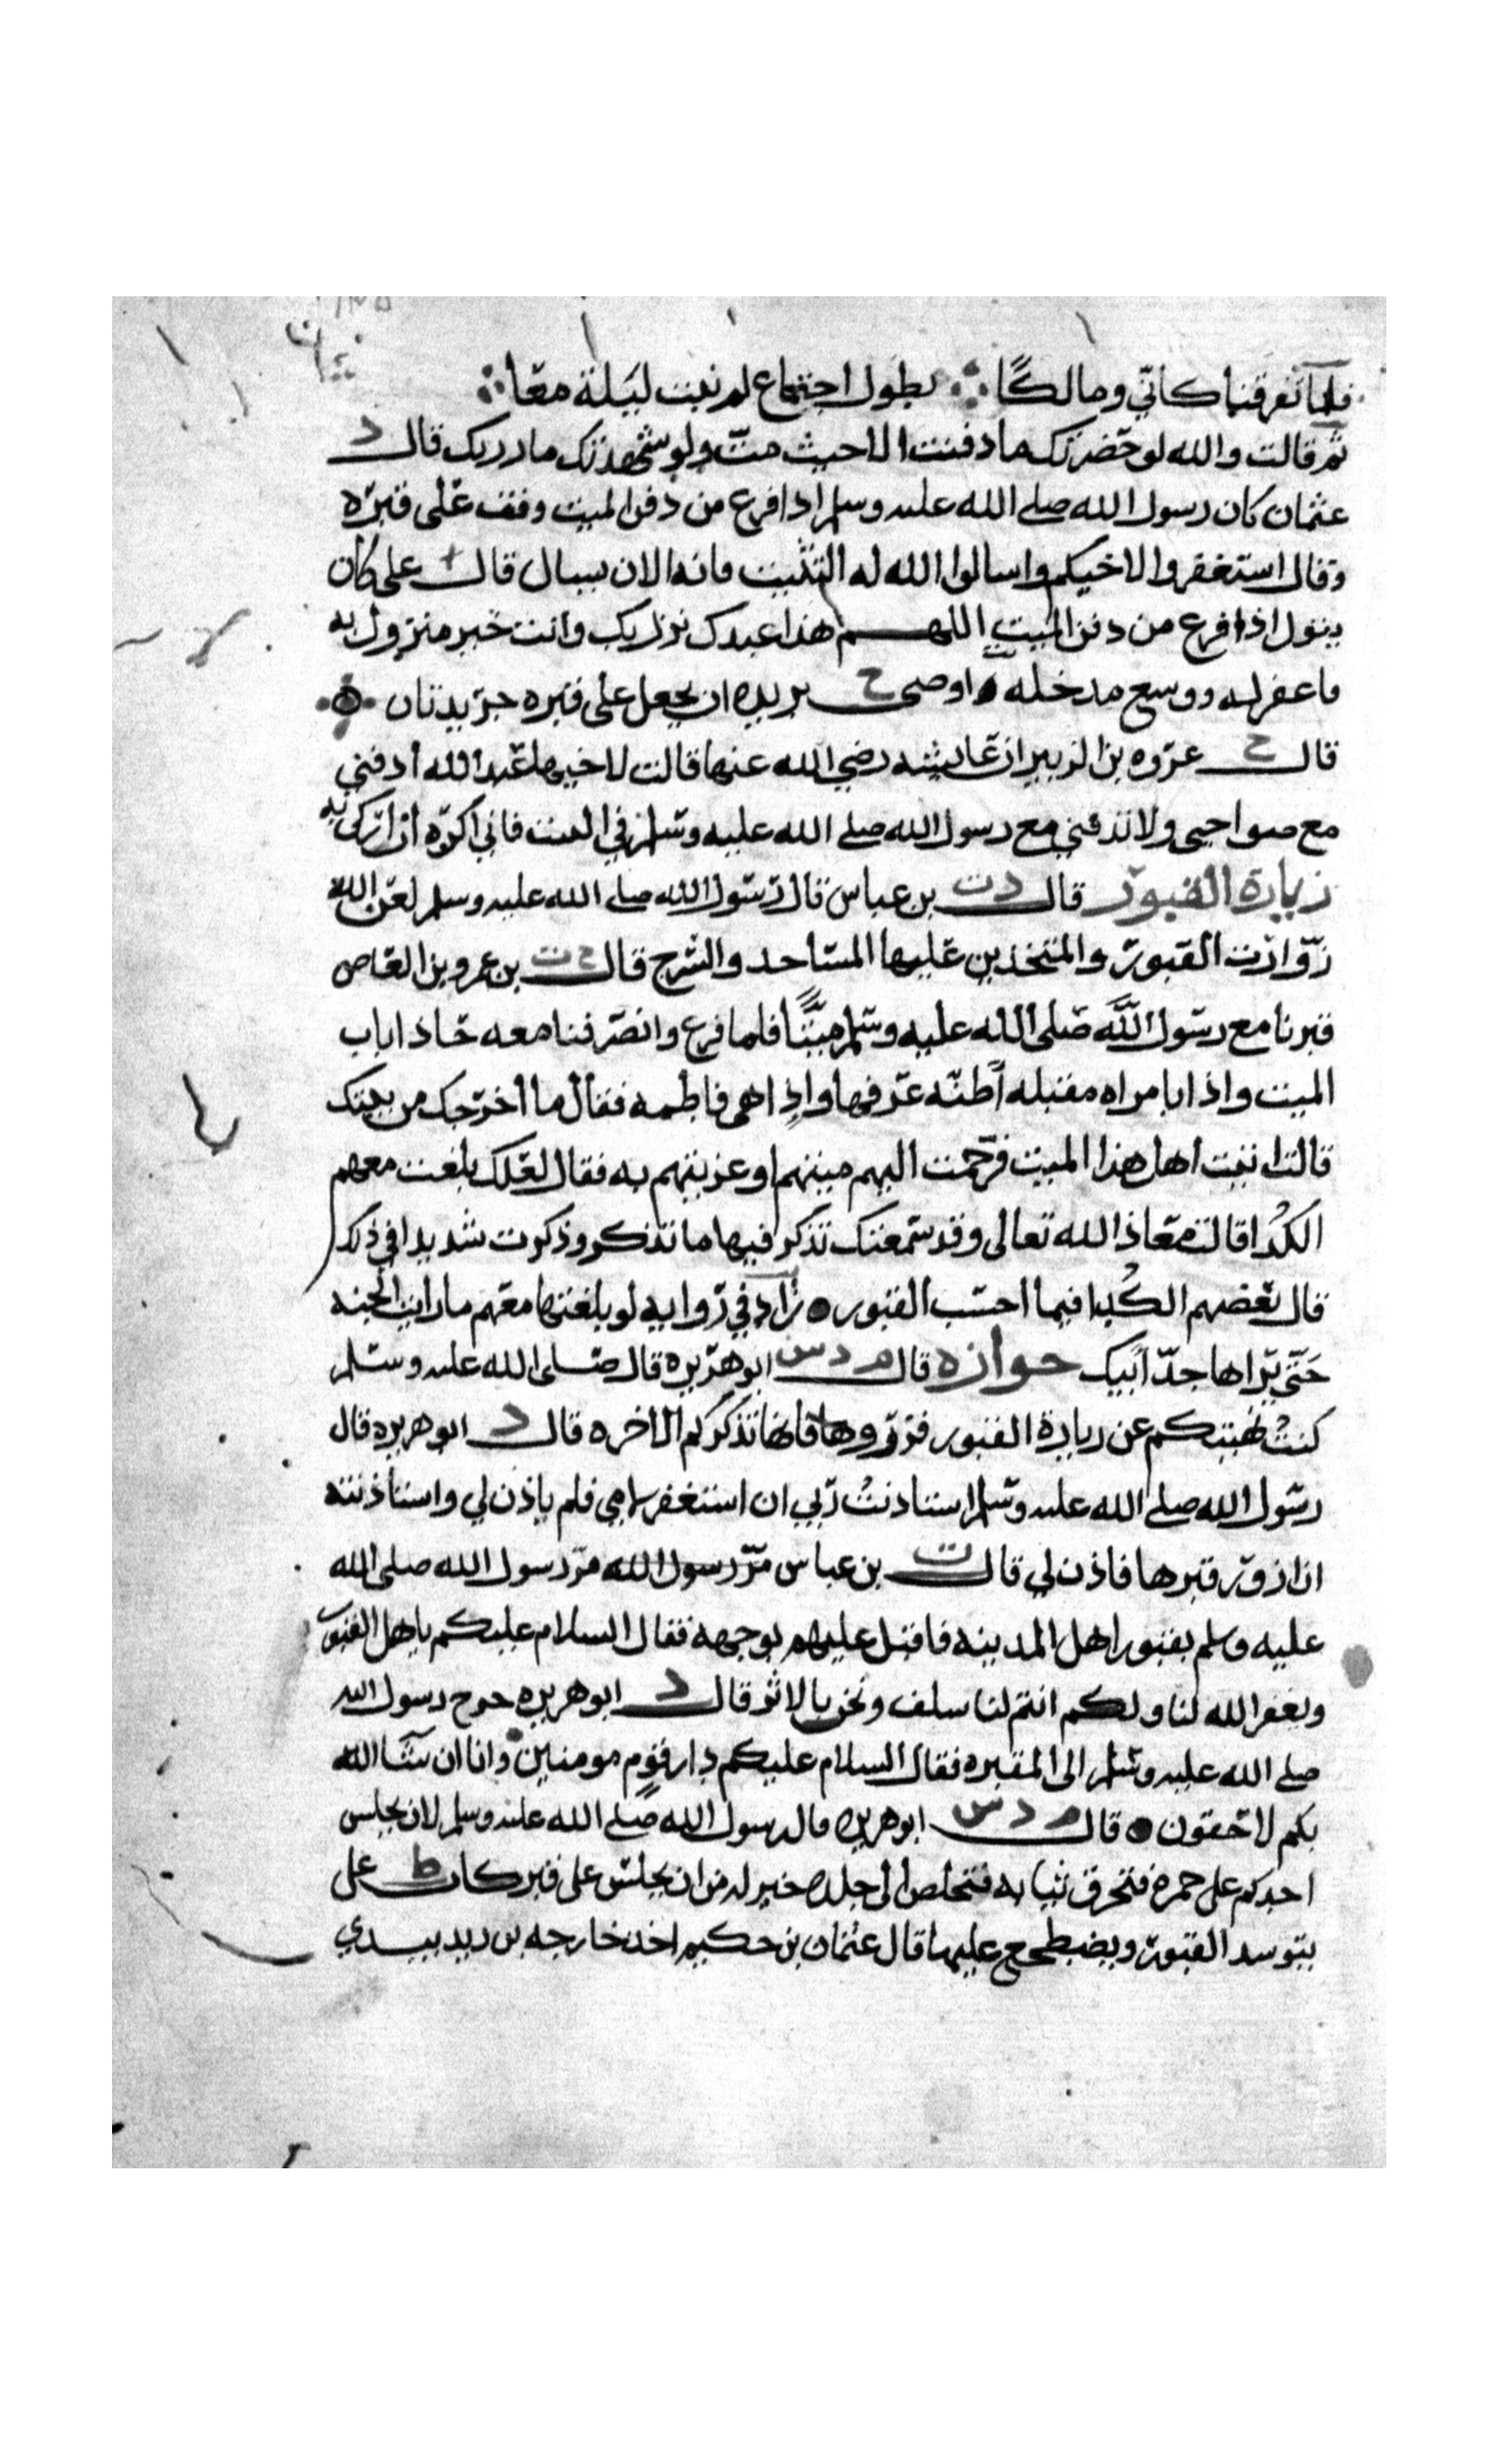 فلما تفرقنا كاني ومالكًا ∴ لطول اجتماع لم نبت ليلة معًا ∴
ثم قالت والله لو حضرتك ما دفنت الا حيث مت ولو شهدتك ما زرتك قال د
عثمان كان رسول الله صلى الله عليه وسلم اذا فرغ من دفن الميت وقف على قبره
وقال استغفروا لاخيكم واسالوا الله له التثبيت فانه الان يسال قال علي كان
يقول اذا فرغ من دفن الميت اللهم هذا عبدك نزل بك وانت خير منزول به
فاغفر له ووسع مدخله اوصى ح بريدة ان يجعل على قبره جريدتان
قال ح عروه بن الزبير ان عايشه رضي الله عنها قالت لاخيها عبد الله ادفني
مع صواحبي ولا تدفني مع رسول الله صلى الله عليه وسلم في البيت فاني اكره ان ازكى به
زيارة القبور قال د ت بن عباس قال رسول الله صلى الله عليه وسلم لعن الله
زوارت القبور والمتخذين عليها المساجد والسرج قال د ت بن عمرو بن العاص
قبرنا مع رسول الله صلى الله عليه وسلم ميتًا فلما فرغ وانصرفنا معه حاذا باب
الميت واذا بامراه مقبله اظنه عرفها واذا هي فاطمه فقال ما اخرجك من بيتك
قالت اتيت اهل هذا الميت فرحمت اليهم ميتهم او عزيتهم به فقال لعلك بلغت معهم
الكدا قالت معاذ الله تعالى وقد سمعتك تذكر فيها ما تذكر وذكرت شديدا في ذلك
قال بعضهم الكدا فيما احسب القبور زاد في روايه لو بلغتها معهم ما رايت الجنه
حتى يراها جد ابيك جوازه قال م د س ابو هريره قال صلى الله عليه وسلم
كنت نهيتكم عن زيارة القبور فزوروها فانها تذكركم الاخره قال د ابو هريره قال
رسول الله صلى الله عليه وسلم استاذنت ربي ان استغفر لامي فلم ياذن لي واستاذنته
ان ازور قبرها فاذن لي قال ت بن عباس مر رسول الله مر رسول الله صلى الله
عليه وسلم بقبور اهل المدينه فاقبل عليهم بوجهه فقال السلام عليكم ياهل القبور
ويغفر الله لنا ولكم انتم لنا سلف ونحن بالاثر قال د ابو هريره خرج رسول الله
صلى الله عليه وسلم الى المقبره فقال السلام عليكم دار قوم مومنين وانا ان شا الله
بكم لاحقون قال م د س ابو هريره قال رسول الله صلى الله عليه وسلم لان يجلس
احدكم على جمرة فتحرق ثيابه فتخلص الى جلده خير له من ان يجلس على قبر كان ط علي
يتوسد القبور ويضطجع عليها قال عثمان بن حكيم اخذ خارجه بن زيد بيدي